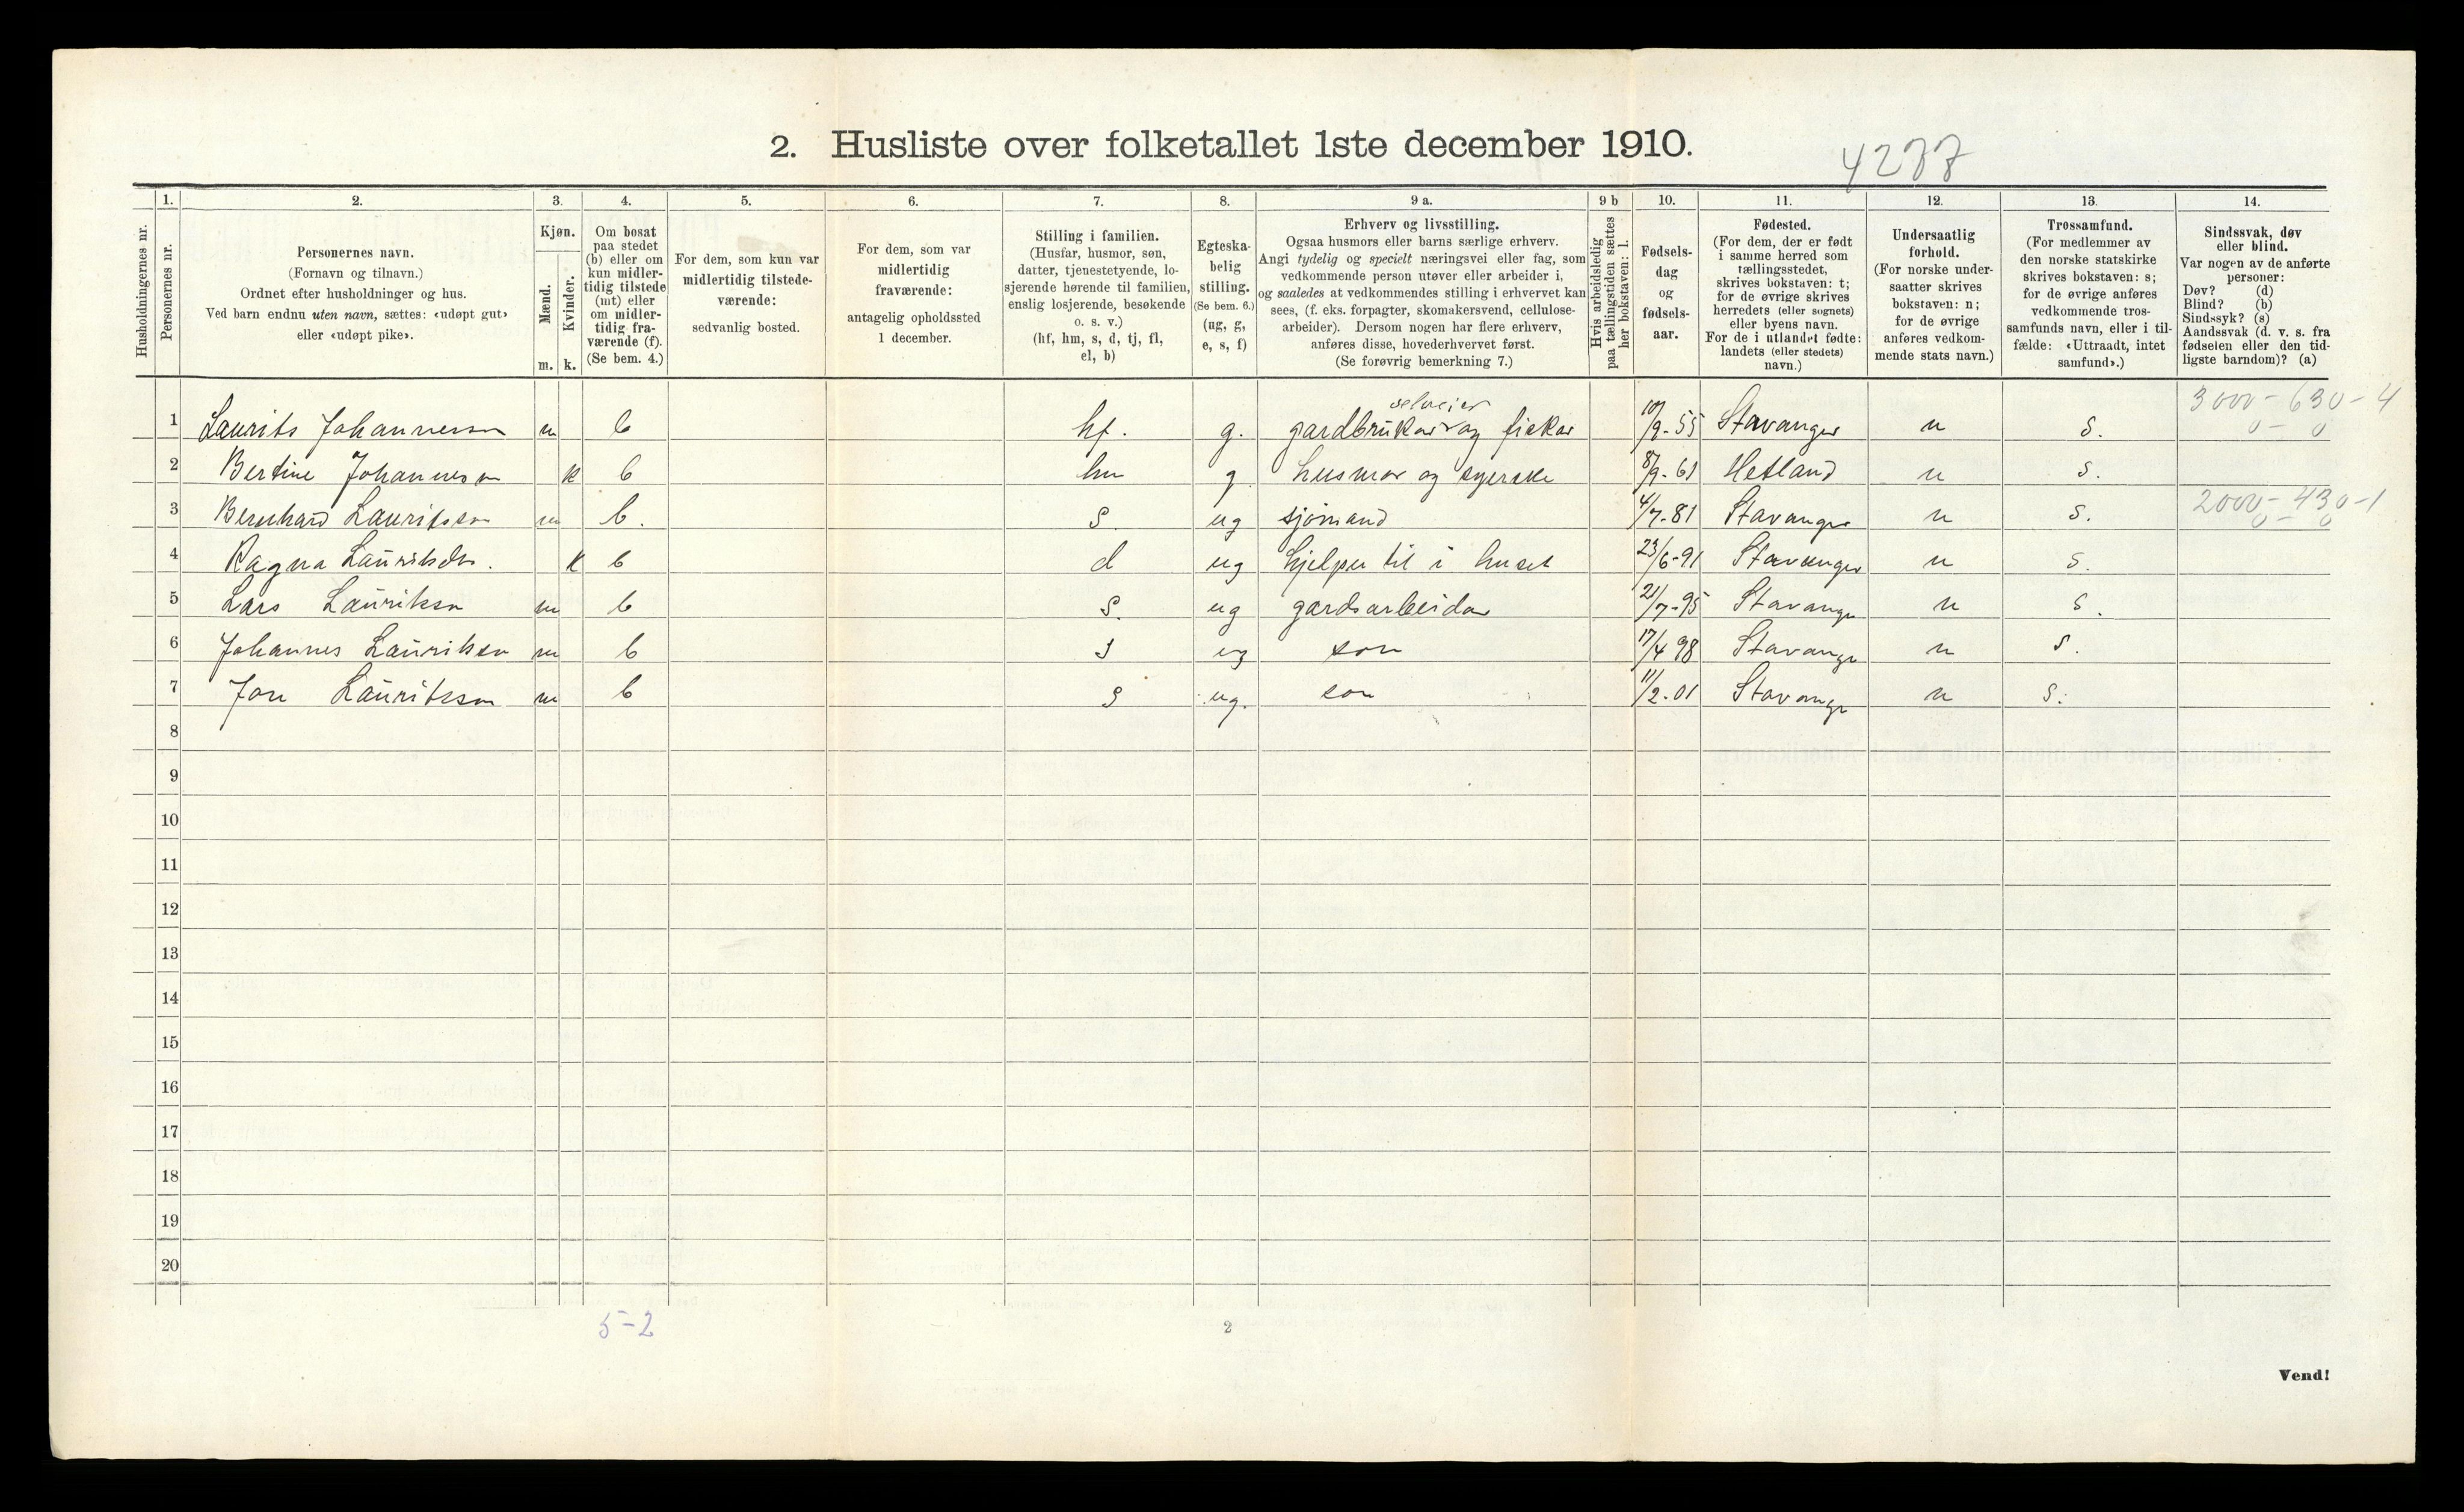 2. Husliste over folketallet 1ste december 1910.
4277
1. 2. 3. 4. 5. 6. 7. 8. 9 a. 9 b 10. 11. 12. 13. 14.
Husholdningernes nr.
Personernes nr.
Personernes navn.
(Fornavn og tilnavn.)
Ordnet efter husholdninger og hus.
Ved barn endnu uten navn, sættes: «udøpt gut»
eller «udøpt pike».
Kjøn.
Mænd.
Kvinder.
m. k.
Om bosat
paa stedet
(b) eller om
kun midler-
tidig tilstede
(mt) eller
om midler-
tidig fra-
værende (f).
(Se bem. 4.)
For dem, som kun var
midlertidig tilstede-
værende:
sedvanlig bosted.
For dem, som var
midlertidig
fraværende:
antagelig opholdssted
1 december.
Stilling i familien.
(Husfar, husmor, søn,
datter, tjenestetyende, lo-
sjerende hørende til familien,
enslig losjerende, besøkende
o. s. v.)
(hf, hm, s, d, tj, fl,
el, b)
Egteska-
belig
stilling.
(Se bem. 6.)
(ug, g,
e, s, f)
Erhverv og livsstilling.
Ogsaa husmors eller barns særlige erhverv.
Angi tydelig og specielt næringsvei eller fag, som
vedkommende person utøver eller arbeider i,
og saaledes at vedkommendes stilling i erhvervet kan
sees, (f. eks. forpagter, skomakersvend, cellulose-
arbeider). Dersom nogen har flere erhverv,
anføres disse, hovederhvervet først.
(Se forøvrig bemerkning 7.)
Hvis arbeidsledig
paa tællingstiden sættes
her bokstaven: l.
Fødsels-
dag
og
fødsels-
aar.
Fødested.
(For dem, der er født
i samme herred som
tællingsstedet,
skrives bokstaven: t;
for de øvrige skrives
herredets (eller sognets)
eller byens navn.
For de i utlandet fødte:
landets (eller stedets)
navn.)
Undersaatlig
forhold.
(For norske under-
saatter skrives
bokstaven: n;
for de øvrige
anføres vedkom-
mende stats navn.)
Trossamfund.
(For medlemmer av
den norske statskirke
skrives bokstaven: s;
for de øvrige anføres
vedkommende tros-
samfunds navn, eller i til-
fælde: «Uttraadt, intet
samfund».)
Sindssvak, døv
eller blind.
Var nogen av de anførte
personer:
Døv? (d)
Blind? (b)
Sindssyk? (s)
Aandssvak (d. v. s. fra
fødselen eller den tid-
ligste barndom)? (a)
selveier 3000 - 630 - 4
1 Laurits Johannesson m b hf. g. gardbrukar og fiskar 10/9-55 Stavanger n s. 0 - 0
2 Bertine Johanneson k b hm g husmor og syerske 8/9-61 Hetland n s.
3 Bernhard Lauritsson m b. s. ug sjömand 4/7-81 Stavanger n s. 2000 - 430 - 1
0 - 0
4 Ragna Lauritsdtr. k b d ug hjelper til i huset 23/6-91 Stavanger n s.
5 Lars Lauritson m b s. ug gardsarbeidar 21/7-95 Stavanger n s.
6 Johannes Lauritson m b s ug son 17/4 98 Stavanger n s.
7 Jon Lauritsson m b s ug. son 11/2-01 Stavanger n s.
8
9
10
11
12
13
14
15
16
17
18
19
20
5-2
2
Vend!